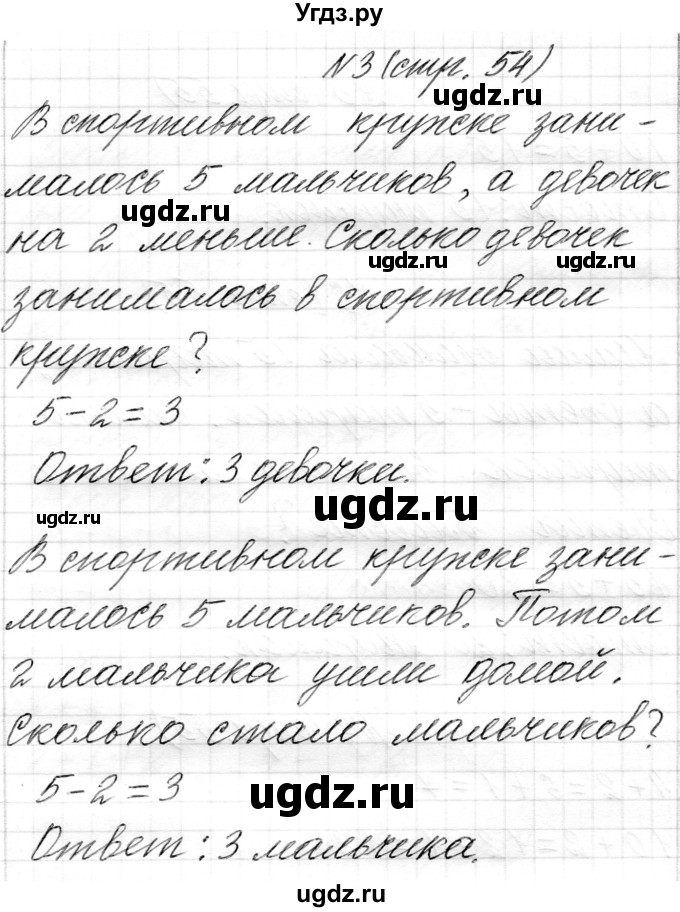 Угдз.ру
N3 (стр. 54)
ugdz.ru
В спортивном кружке зани-
малось 5 мальчиков, а девочек
ugdz.ru
на 2 меньше. Сколько девочек
ugdz.ru ugdz.ru
занималось в спортивном
кружке?
5-2=3
Ответ: 3 девочки.
ugdz.ru
ugdz.ru
В спортивном кружке зани-
малось 5 мальчиков. Потом
2 мальчика ушли домой.
Сколько стало мальчиков?
5-2=3
ugdz.ru
Ответ: 3 мальчика.
ugdz.ru